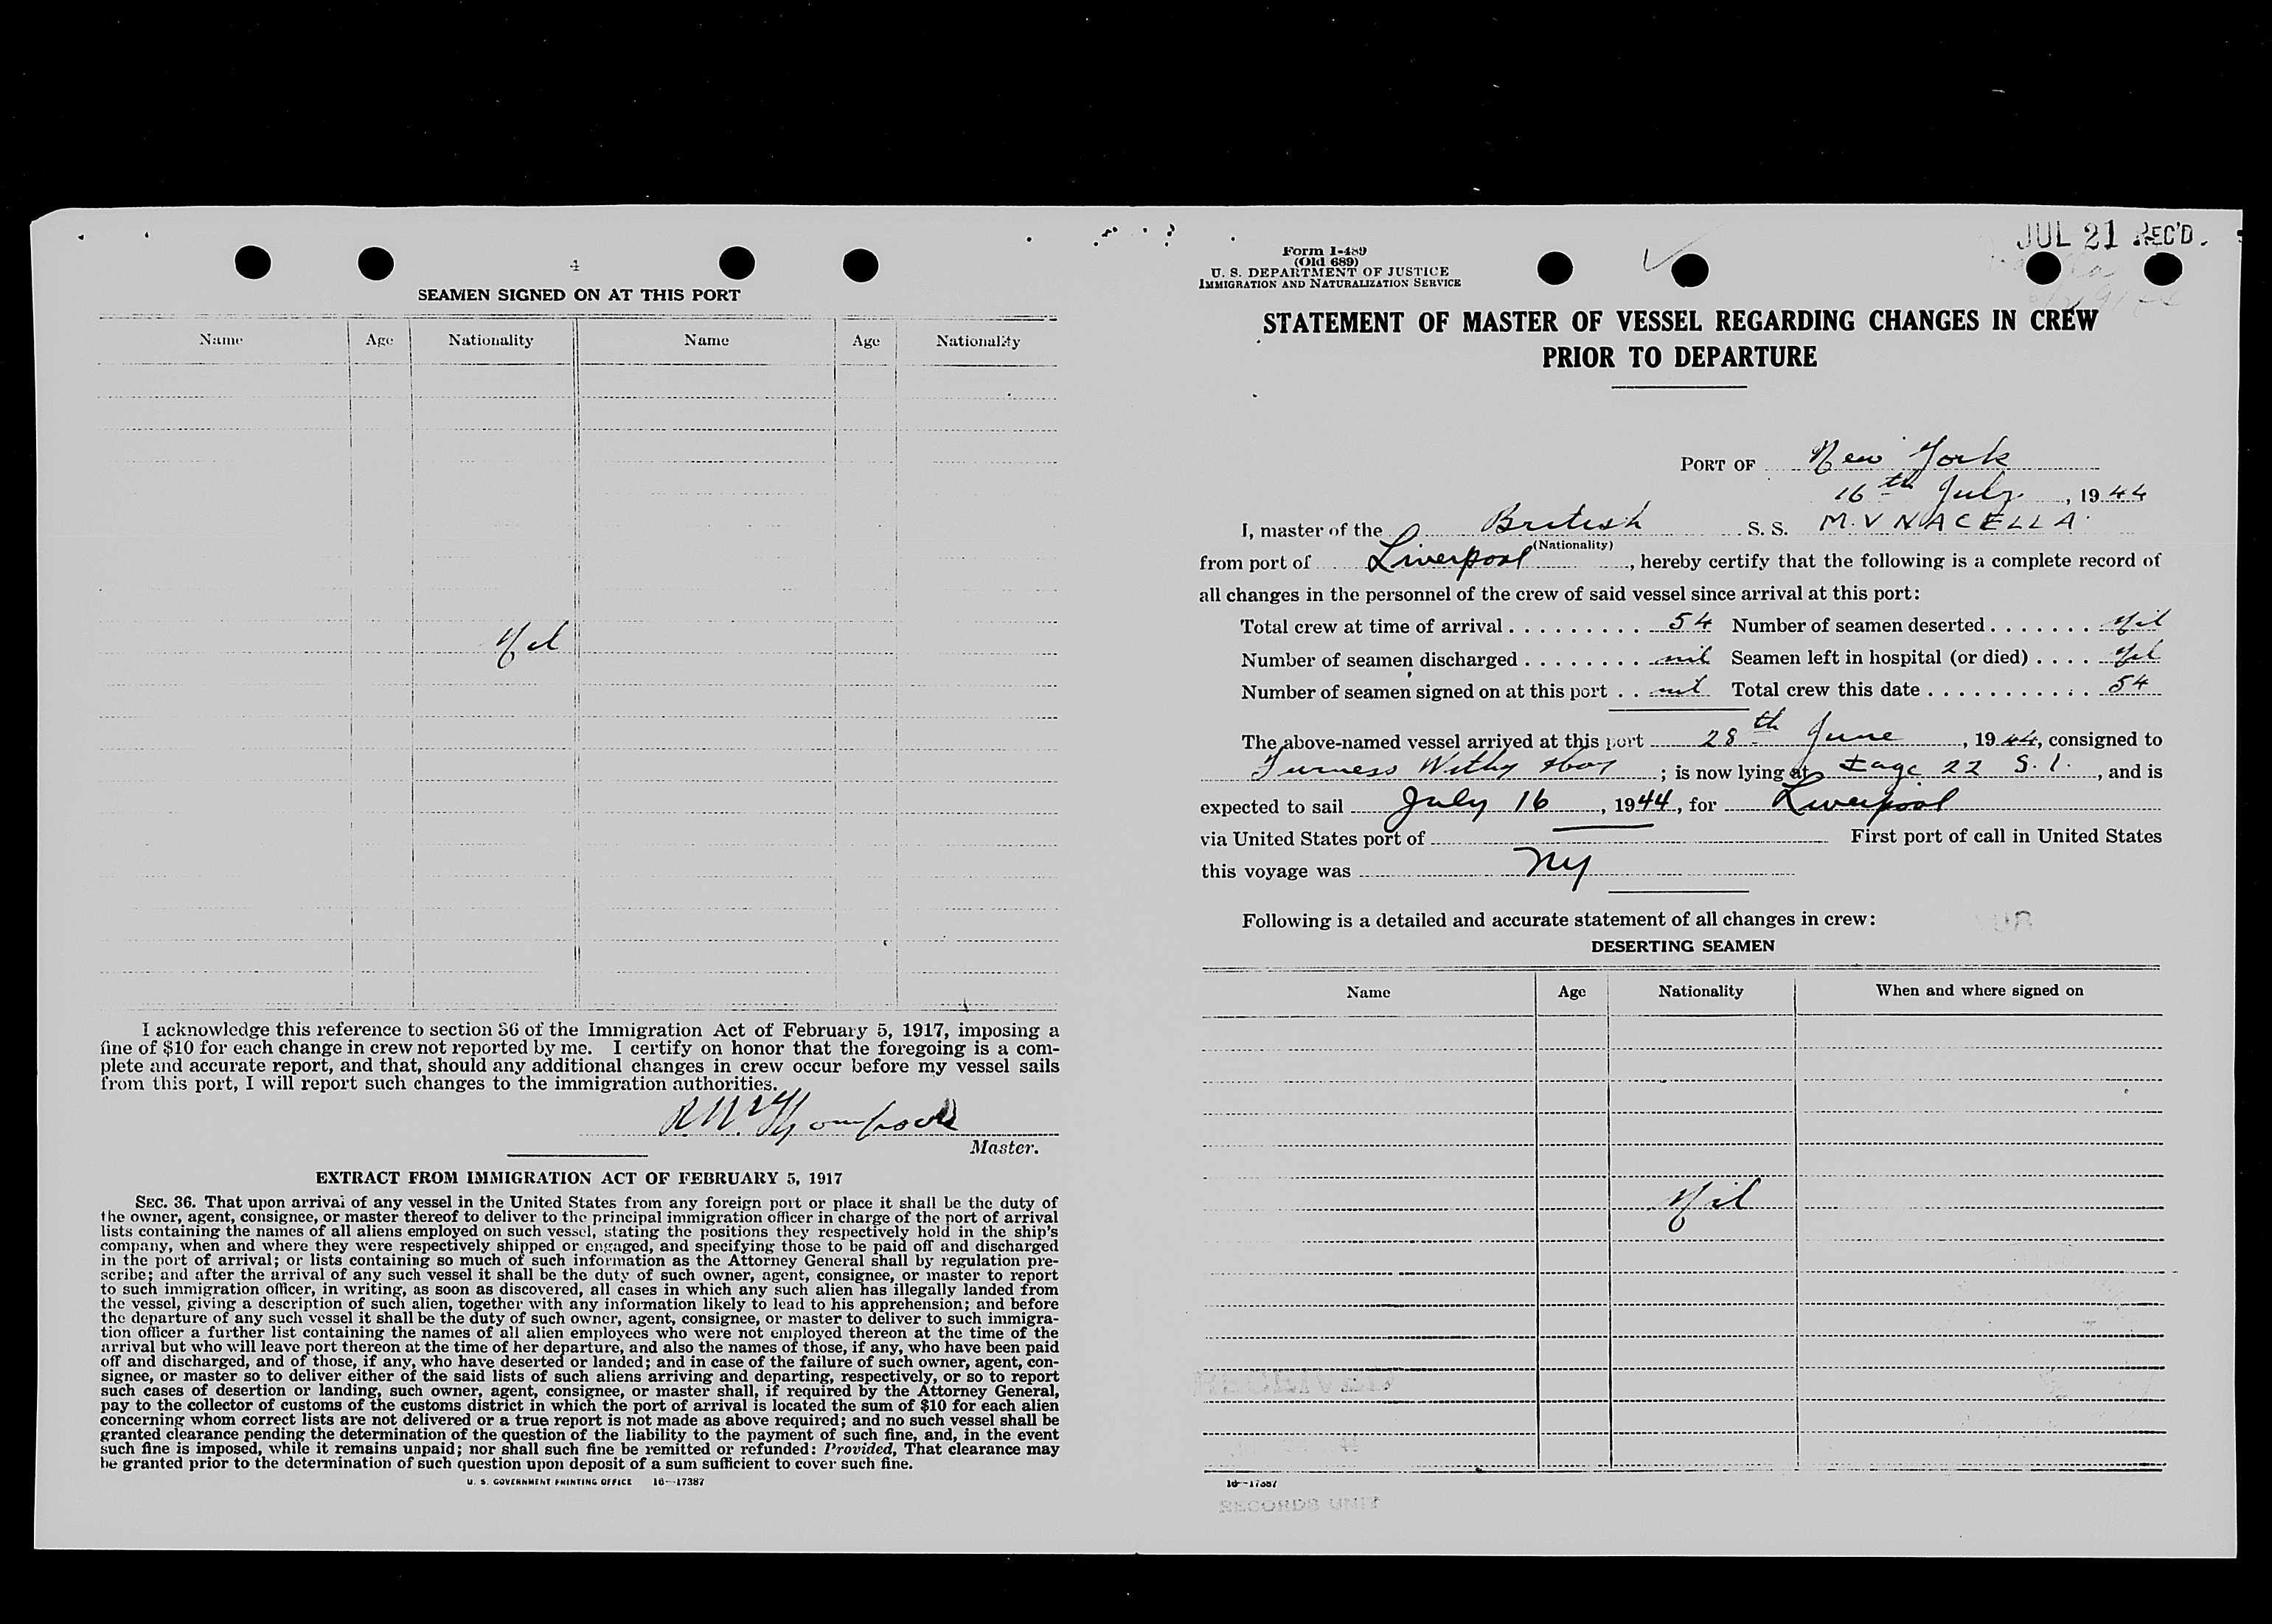 4
SEAMEN SIGNED ON AT THIS PORT
Name Age Nationality Name Age Nationality
Nil
I acknowledge this reference to section 36 of the Immigration Act of February 5, 1917, imposing a
fine of $10 for each change in crew not reported by me. I certify on honor that the foregoing is a com-
plete and accurate report, and that, should any additional changes in crew occur before my vessel sails
from this port, I will report such changes to the immigration authorities.
Master.
EXTRACT FROM IMMIGRATION ACT OF FEBRUARY 5, 1917
SEC. 36. That upon arrival of any vessel in the United States from any foreign port or place it shall be the duty of
the owner, agent, consignee, or master thereof to deliver to the principal immigration officer in charge of the port of arrival
lists containing the names of all aliens employed on such vessel, stating the positions they respectively hold in the ship's
company, when and where they were respectively shipped or engaged, and specifying those to be paid off and discharged
in the port of arrival; or lists containing so much of such information as the Attorney General shall by regulation pre-
scribe; and after the arrival of any such vessel it shall be the duty of such owner, agent, consignee, or master to report
to such immigration officer, in writing, as soon as discovered, all cases in which any such alien has illegally landed from
the vessel, giving a description of such alien, together with any information likely to lead to his apprehension; and before
the departure of any such vessel it shall be the duty of such owner, agent, consignee, or master to deliver to such immigra-
tion officer a further list containing the names of all alien employees who were not employed thereon at the time of the
arrival but who will leave port thereon at the time of her departure, and also the names of those, if any, who have been paid
off and discharged, and of those, if any, who have deserted or landed; and in case of the failure of such owner, agent, con-
signee, or master so to deliver either of the said lists of such aliens arriving and departing, respectively, or so to report
such cases of desertion or landing, such owner, agent, consignee, or master shall, if required by the Attorney General,
pay to the collector of customs of the customs district in which the port of arrival is located the sum of $10 for each alien
concerning whom correct lists are not delivered or a true report is not made as above required; and no such vessel shall be
granted clearance pending the determination of the question of the liability to the payment of such fine, and, in the event
such fine is imposed, while it remains unpaid; nor shall such fine be remitted or refunded: Provided, That clearance may
be granted prior to the determination of such question upon deposit of a sum sufficient to cover such fine.
U. S. GOVERNMENT PRINTING OFFICE 16—17387
JUL 21 REC'D.
Form I-489
(Old 689)
U. S. DEPARTMENT OF JUSTICE
IMMIGRATION AND NATURALIZATION SERVICE
STATEMENT OF MASTER OF VESSEL REGARDING CHANGES IN CREW
PRIOR TO DEPARTURE
PORT OF New York
16th July, 1944
I, master of the British S. S. M.V NACELLA
(Nationality)
from port of Liverpool, hereby certify that the following is a complete record of
all changes in the personnel of the crew of said vessel since arrival at this port:
Total crew at time of arrival 54 Number of seamen deserted Nil
Number of seamen discharged nil Seamen left in hospital (or died) Nil
Number of seamen signed on at this port nil Total crew this date 54
The above-named vessel arrived at this port 28th June, 1944, consigned to
Furness Withy ; is now lying at 22 S. I., and is
expected to sail July 16, 1944, for Liverpool
via United States port of First port of call in United States
this voyage was NY
Following is a detailed and accurate statement of all changes in crew:
DESERTING SEAMEN
Name Age Nationality When and where signed on
Nil
RECEIVED
44
16—17387
RECORDS UNIT